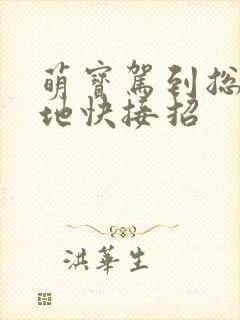 萌寶駕到総
地快接招
洪華生